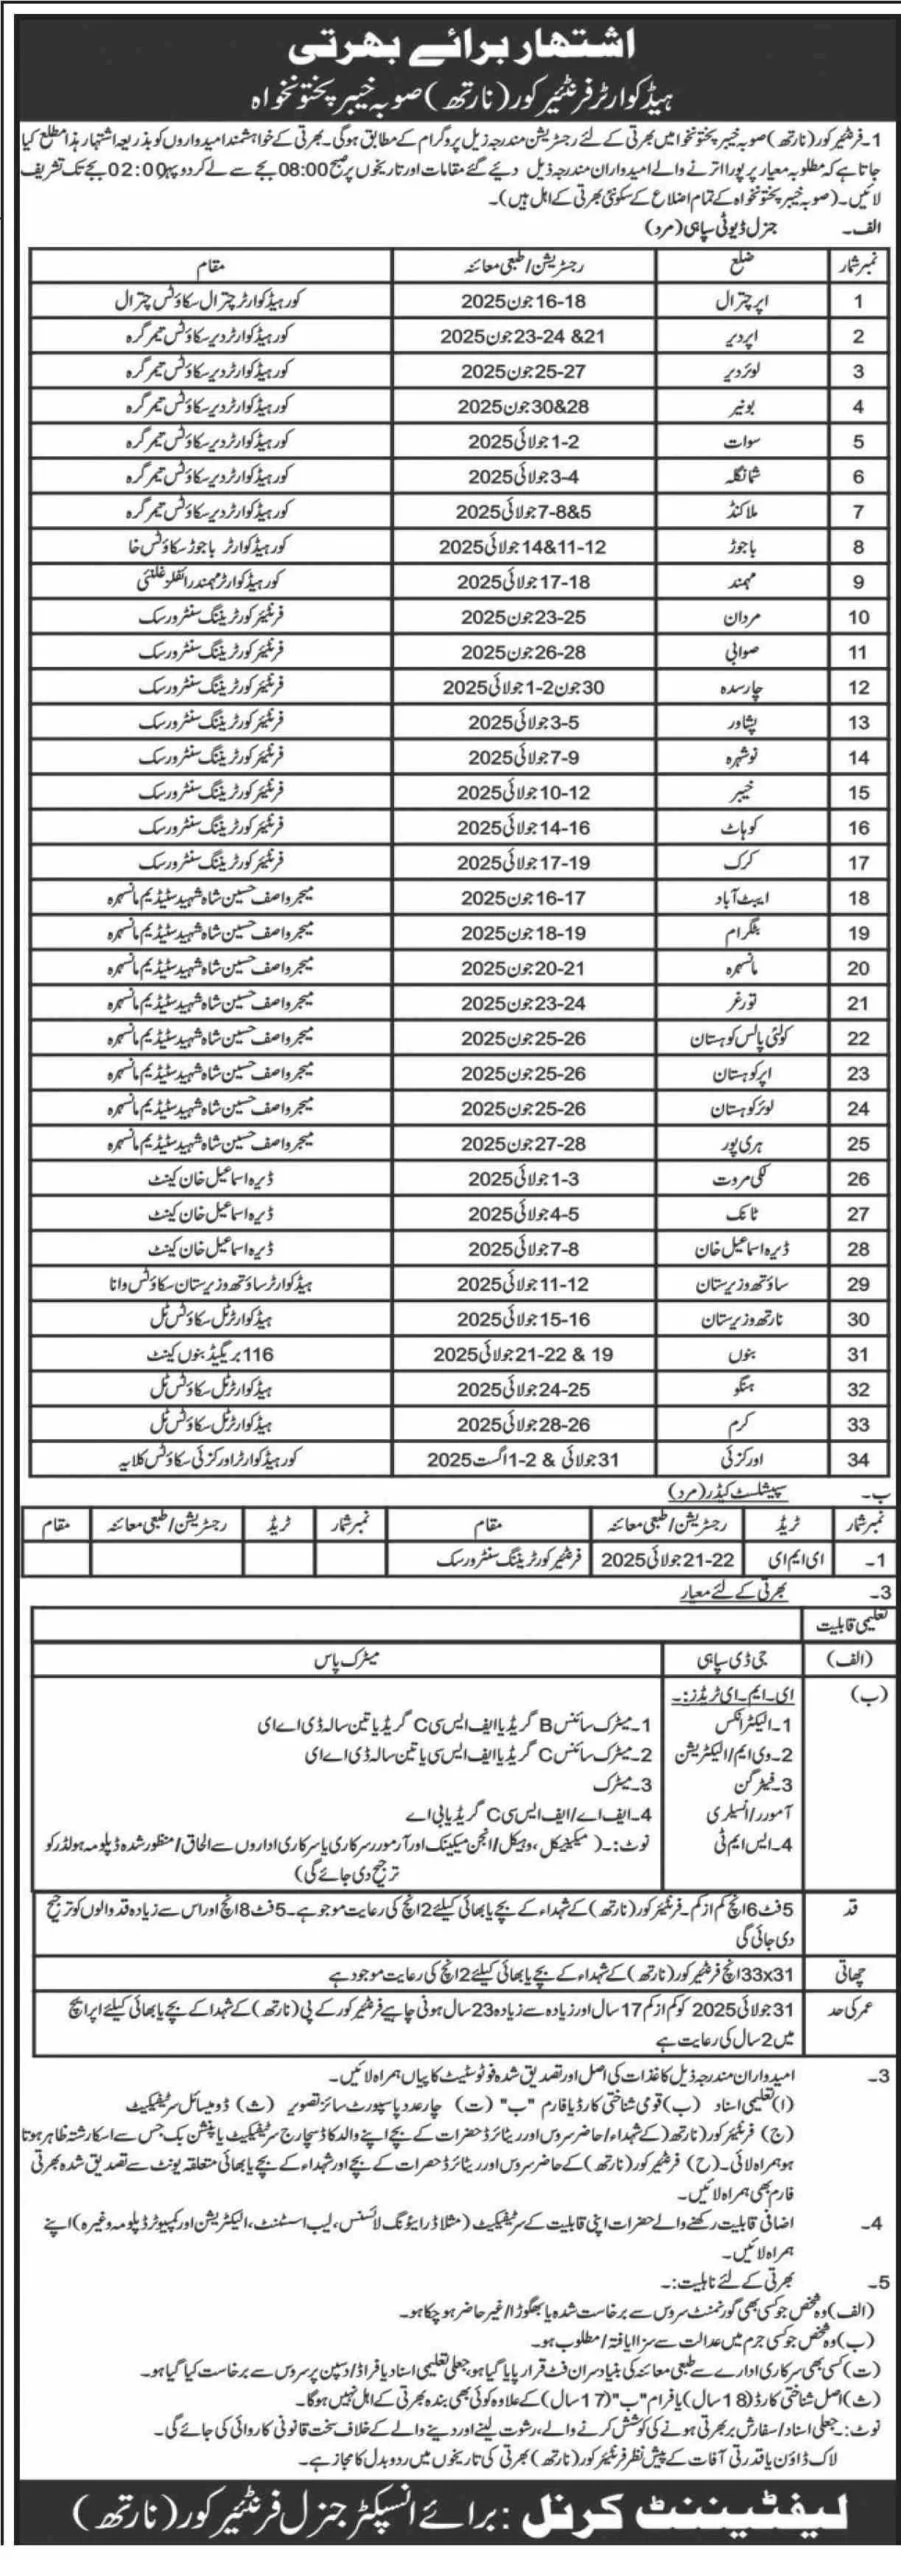 اشتہار برائے بھرتی
ہیڈ کوارٹر فرنٹیئر کور (نارتھ) صوبہ خیبر پختونخواہ
1۔ فرنٹیئر کور (نارتھ) صوبہ خیبر پختونخوا میں بھرتی کے لئے رجسٹریشن مندرجہ ذیل پروگرام کے مطابق ہوگی۔ بھرتی کے خواہشمند امیدواروں کو بذریعہ اشتہار ہذا مطلع کیا
جاتا ہے کہ مطلوبہ معیار پر پورا اترنے والے امیدواران مندرجہ ذیل دیئے گئے مقامات اور تاریخوں پر صبح 08:00 بجے سے لے کر دوپہر 02:00 بجے تک تشریف
لائیں۔ (صوبہ خیبر پختونخواہ کے تمام اضلاع کے سکونتی بھرتی کے اہل ہیں)۔
الف۔ جنرل ڈیوٹی سپاہی (مرد)
نمبر شمار ضلع رجسٹریشن/طبعی معائنہ مقام
1 اپر چترال 16-18 جون 2025 کور ہیڈ کوارٹر چترال سکاؤٹس چترال
2 اپر دیر 21& 23-24 جون 2025 کور ہیڈ کوارٹر دیر سکاؤٹس تیمرگرہ
3 لوئر دیر 25-27 جون 2025 کور ہیڈ کوارٹر دیر سکاؤٹس تیمرگرہ
4 بونیر 28&30 جون 2025 کور ہیڈ کوارٹر دیر سکاؤٹس تیمرگرہ
5 سوات 1-2 جولائی 2025 کور ہیڈ کوارٹر دیر سکاؤٹس تیمرگرہ
6 شانگلہ 3-4 جولائی 2025 کور ہیڈ کوارٹر دیر سکاؤٹس تیمرگرہ
7 ملاکنڈ 5&7-8 جولائی 2025 کور ہیڈ کوارٹر دیر سکاؤٹس تیمرگرہ
8 باجوڑ 11-12&14 جولائی 2025 کور ہیڈ کوارٹر باجوڑ سکاؤٹس خا
9 مہمند 17-18 جولائی 2025 کور ہیڈ کوارٹر مہمند رائفلز غلنئی
10 مردان 23-25 جون 2025 فرنٹیئر کور ٹریننگ سنٹر ورسک
11 صوابی 26-28 جون 2025 فرنٹیئر کور ٹریننگ سنٹر ورسک
12 چارسدہ 30 جون 1-2 جولائی 2025 فرنٹیئر کور ٹریننگ سنٹر ورسک
13 پشاور 3-5 جولائی 2025 فرنٹیئر کور ٹریننگ سنٹر ورسک
14 نوشہرہ 7-9 جولائی 2025 فرنٹیئر کور ٹریننگ سنٹر ورسک
15 خیبر 10-12 جولائی 2025 فرنٹیئر کور ٹریننگ سنٹر ورسک
16 کوہاٹ 14-16 جولائی 2025 فرنٹیئر کور ٹریننگ سنٹر ورسک
17 کرک 17-19 جولائی 2025 فرنٹیئر کور ٹریننگ سنٹر ورسک
18 ایبٹ آباد 16-17 جون 2025 میجر واصف حسین شاہ شہید سٹیڈیم مانسہرہ
19 بٹگرام 18-19 جون 2025 میجر واصف حسین شاہ شہید سٹیڈیم مانسہرہ
20 مانسہرہ 20-21 جون 2025 میجر واصف حسین شاہ شہید سٹیڈیم مانسہرہ
21 تورغر 23-24 جون 2025 میجر واصف حسین شاہ شہید سٹیڈیم مانسہرہ
22 کولئی پالس کوہستان 25-26 جون 2025 میجر واصف حسین شاہ شہید سٹیڈیم مانسہرہ
23 اپر کوہستان 25-26 جون 2025 میجر واصف حسین شاہ شہید سٹیڈیم مانسہرہ
24 لوئر کوہستان 25-26 جون 2025 میجر واصف حسین شاہ شہید سٹیڈیم مانسہرہ
25 ہری پور 27-28 جون 2025 میجر واصف حسین شاہ شہید سٹیڈیم مانسہرہ
26 لکی مروت 1-3 جولائی 2025 ڈیرہ اسماعیل خان کینٹ
27 ٹانک 4-5 جولائی 2025 ڈیرہ اسماعیل خان کینٹ
28 ڈیرہ اسماعیل خان 7-8 جولائی 2025 ڈیرہ اسماعیل خان کینٹ
29 ساؤتھ وزیرستان 11-12 جولائی 2025 ہیڈ کوارٹر ساؤتھ وزیرستان سکاؤٹس وانا
30 نارتھ وزیرستان 15-16 جولائی 2025 ہیڈ کوارٹر ٹل سکاؤٹس ٹل
31 بنوں 19 & 21-22 جولائی 2025 116 بریگیڈ بنوں کینٹ
32 ہنگو 24-25 جولائی 2025 ہیڈ کوارٹر ٹل سکاؤٹس ٹل
33 کرم 28-26 جولائی 2025 ہیڈ کوارٹر ٹل سکاؤٹس ٹل
34 اورکزئی 31 جولائی & 1-2 اگست 2025 کور ہیڈ کوارٹر اورکزئی سکاؤٹس کلایہ
ب۔ سپیشلسٹ کیڈر (مرد)
نمبر شمار ٹریڈ رجسٹریشن/طبعی معائنہ مقام نمبر شمار ٹریڈ رجسٹریشن/طبعی معائنہ مقام
1۔ ای ایم ای 21-22 جولائی 2025 فرنٹیئر کور ٹریننگ سنٹر ورسک
3۔ بھرتی کے لئے معیار
تعلیمی قابلیت
(الف) جی ڈی سپاہی میٹرک پاس
(ب) ای۔ایم۔ای ٹریڈز:۔
1۔الیکٹرانکس 1۔میٹرک سائنس B گریڈ یا ایف ایس سی C گریڈ یا تین سالہ ڈی اے ای
2۔وی ایم/الیکٹریشن 2۔میٹرک سائنس C گریڈ یا ایف ایس سی یا تین سالہ ڈی اے ای
3۔فیٹر گن 3۔میٹرک
آمورر/انسلری 4۔ایف اے/ایف ایس سی C گریڈ یا بی اے
4۔ایس ایم ٹی نوٹ:۔ (میکینیکل، وہیکل/انجن میکینک اور آرمورر سرکاری یا سرکاری اداروں سے الحاق/منظور شدہ ڈپلومہ ہولڈر کو
ترجیح دی جائے گی)
قد 5 فٹ 6 انچ کم از کم۔ فرنٹیئر کور (نارتھ) کے شہداء کے بچے یا بھائی کیلئے 2 انچ کی رعایت موجود ہے۔ 5 فٹ 8 انچ اور اس سے زیادہ قد والوں کو ترجیح
دی جائی گی
چھاتی 33x31 انچ فرنٹیئر کور (نارتھ) کے شہداء کے بچے یا بھائی کیلئے 2 انچ کی رعایت موجود ہے
عمر کی حد 31 جولائی 2025 کو کم از کم 17 سال اور زیادہ سے زیادہ 23 سال ہونی چاہیے فرنٹیئر کور کے پی (نارتھ) کے شہدا کے بچے یا بھائی کیلئے اپر ایج
میں 2 سال کی رعایت ہے
3۔ امیدواران مندرجہ ذیل کاغذات کی اصل اور تصدیق شدہ فوٹو سٹیٹ کاپیاں ہمراہ لائیں۔
(ا) تعلیمی اسناد (ب) قومی شناختی کارڈ یا فارم "ب" (ت) چار عدد پاسپورٹ سائز تصویر (ث) ڈومیسائل سرٹیفکیٹ
(ج) فرنٹیئر کور (نارتھ) کے شہداء/حاضر سروس اور ریٹائرڈ حضرات کے بچے اپنے والد کا ڈسچارج سرٹیفکیٹ یا پنشن بک جس سے اسکا رشتہ ظاہر ہوتا
ہو ہمراہ لائی۔ (ح) فرنٹیئر کور (نارتھ) کے حاضر سروس اور ریٹائرڈ حضرات کے بچے اور شہداء کے بچے یا بھائی متعلقہ یونٹ سے تصدیق شدہ بھرتی
فارم بھی ہمراہ لائیں۔
4۔ اضافی قابلیت رکھنے والے حضرات اپنی قابلیت کے سرٹیفکیٹ (مثلا ڈرائیونگ لائسنس، لیب اسسٹنٹ، الیکٹریشن اور کمپیوٹر ڈپلومہ وغیرہ) اپنے
ہمراہ لائیں۔
5۔ بھرتی کے لئے نااہلیت:۔
(الف) وہ شخص جو کسی بھی گورنمنٹ سروس سے برخاست شدہ یا بھگوڑا/غیر حاضر ہو چکا ہو۔
(ب) وہ شخص جو کسی جرم میں عدالت سے سزایافتہ/مطلوب ہو۔
(ت) کسی بھی سرکاری ادارے سے طبعی معائنہ کی بنیاد سران فٹ قرار پایا گیا ہو جعلی تعلیمی اسناد یا فراڈ/دسپلن پر سروس سے برخاست کیا گیا ہو۔
(ث) اصل شناختی کارڈ (18 سال) یا فرام "ب" (17 سال) کے علاوہ کوئی بھی بندہ بھرتی کے اہل نہیں ہوگا۔
نوٹ:۔ جعلی اسناد/سفارش پر بھرتی ہونے کی کوشش کرنے والے، رشوت لینے اور دینے والے کے خلاف سخت قانونی کاروائی کی جائے گی۔
لاک ڈاؤن یا قدرتی آفات کے پیش نظر فرنٹیئر کور (نارتھ) بھرتی کی تاریخوں میں ردوبدل کا مجاز ہے۔
لیفٹیننٹ کرنل : برائے انسپکٹر جنرل فرنٹیئر کور (نارتھ)